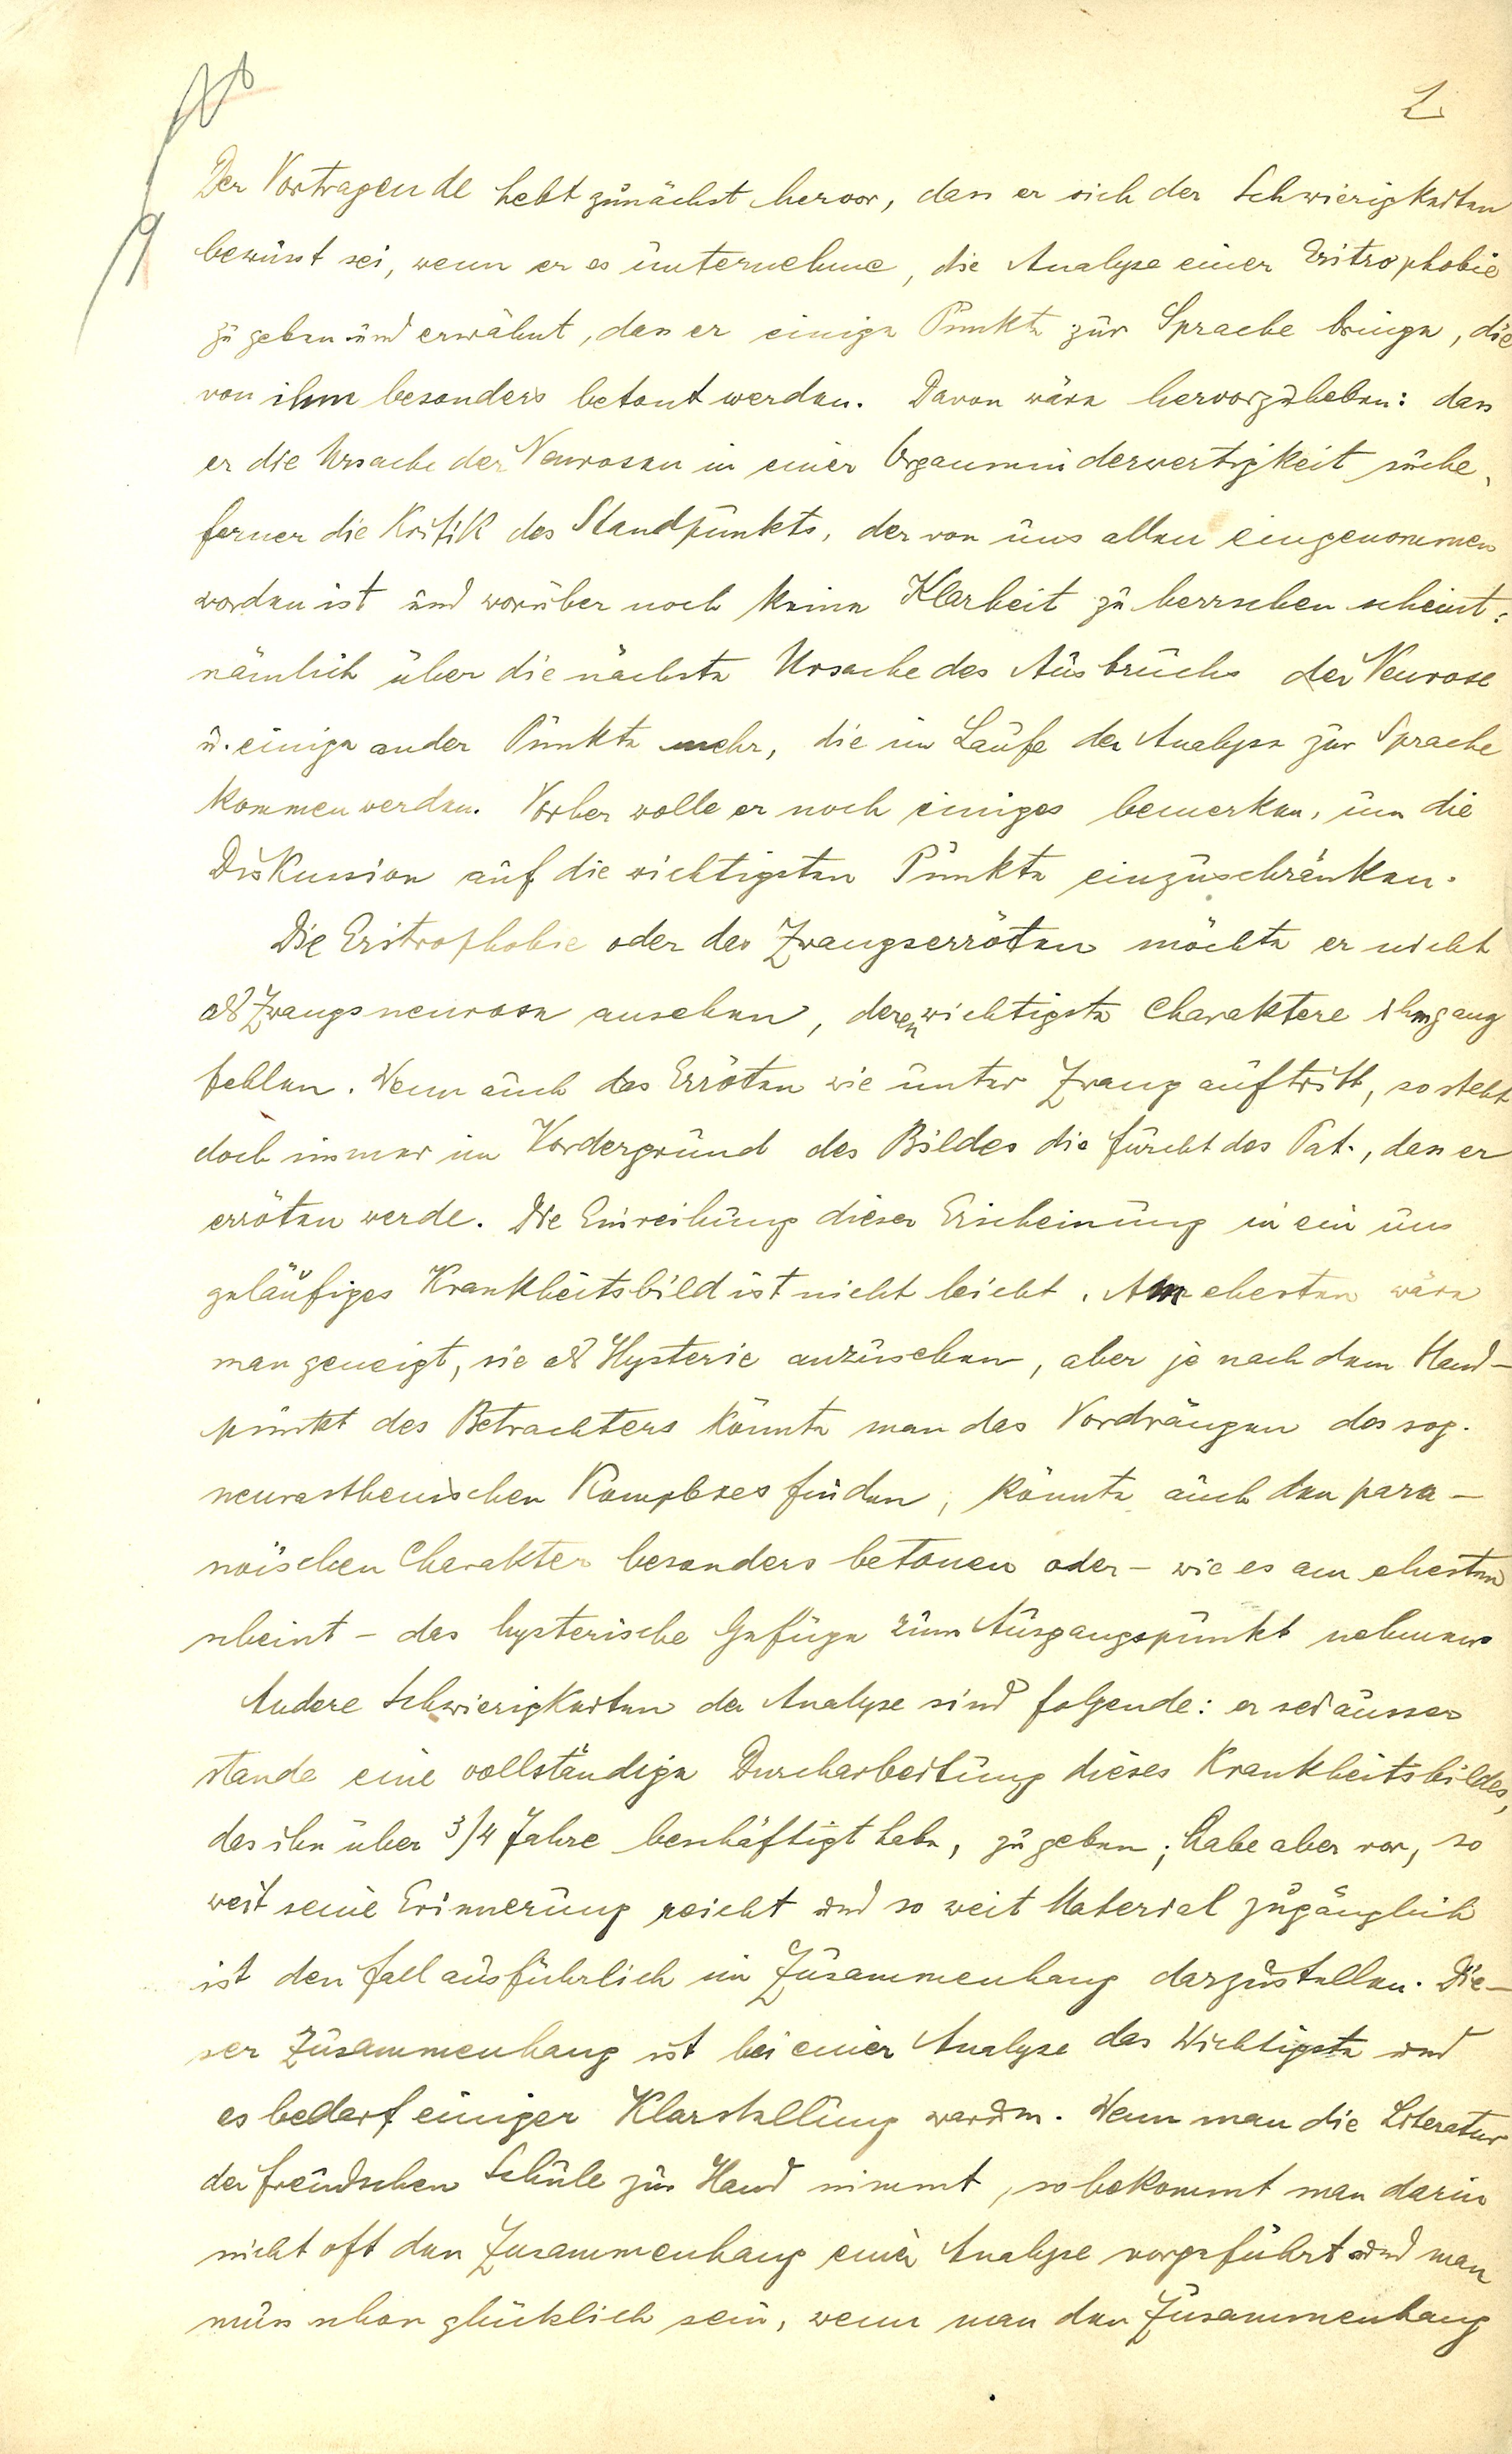 2
Der Vortragende hebt zunächst hervor, dass er sich der Schwierigkeiten
bewusst sei, wenn er es unternehme, die Analyse einer Eritrophobie
zu geben und erwähnt, dass er einige Punkte zur Sprache bringe, die
von ihm besonders betont werden. Davon wäre hervorzuheben: dass
er die Ursache der Neurosen in einer Organminderwertigkeit suche,
ferner die Kritik des Standpunkts, der von uns allen eingenommen
worden ist und worüber noch keine Klarheit zu herrschen scheint:
nämlich über die nächste Ursache des Ausbruchs der Neurose
u. einige ander Punkte mehr, die im Laufe der Analyse zur Sprache
kommen werden. Vorher wolle er noch einiges bemerken, um die
Diskussion auf die wichtigsten Punkte einzuschränken.
Die Eritrophobie oder das Zwangserröten möchte er nicht
als Zwangsneurose ansehen, deren wichtigste Charaktere ihm ganz
fehlen. Wenn auch das Erröten wie unter Zwang auftritt, so steht
doch immer im Vordergrund des Bildes die Furcht des Pat., dass er
erröten werde. Die Einreihung dieser Erscheinung in ein uns
geläufiges Krankheitsbild ist nicht leicht. Am ehesten wäre
man geneigt, sie als Hysterie anzusehen, aber je nach dem Stand-
punkt des Betrachters könnte man das Vordrängen des sog.
neurasthenischen Komplexes finden, könnte auch den para-
noischen Charakter besonders betonen oder - wie es am ehesten
scheint - das hysterische Gefüge zum Ausgangspunkt nehmen.
Andere Schwierigkeiten der Analyse sind folgende: er sei ausser
stande eine vollständige Durcharbeitung dieses Krankheitsbildes,
das ihn über 3/4 Jahre beschäftigt habe, zu geben; habe aber vor, so
weit seine Erinnerung reicht und so weit Material zugänglich
ist den Fall ausführlich im Zusammenhang darzustellen. Die-
ser Zusammenhang ist bei einer Analyse das Wichtigste und
es bedarf einiger Klarstellung warum. Wenn man die Literatur
der freudschen Schule zur Hand nimmt, so bekommt man darin
nicht oft den Zusammenhang einer Analyse vorgeführt und man
muss schon glücklich sein, wenn man den Zusammenhang